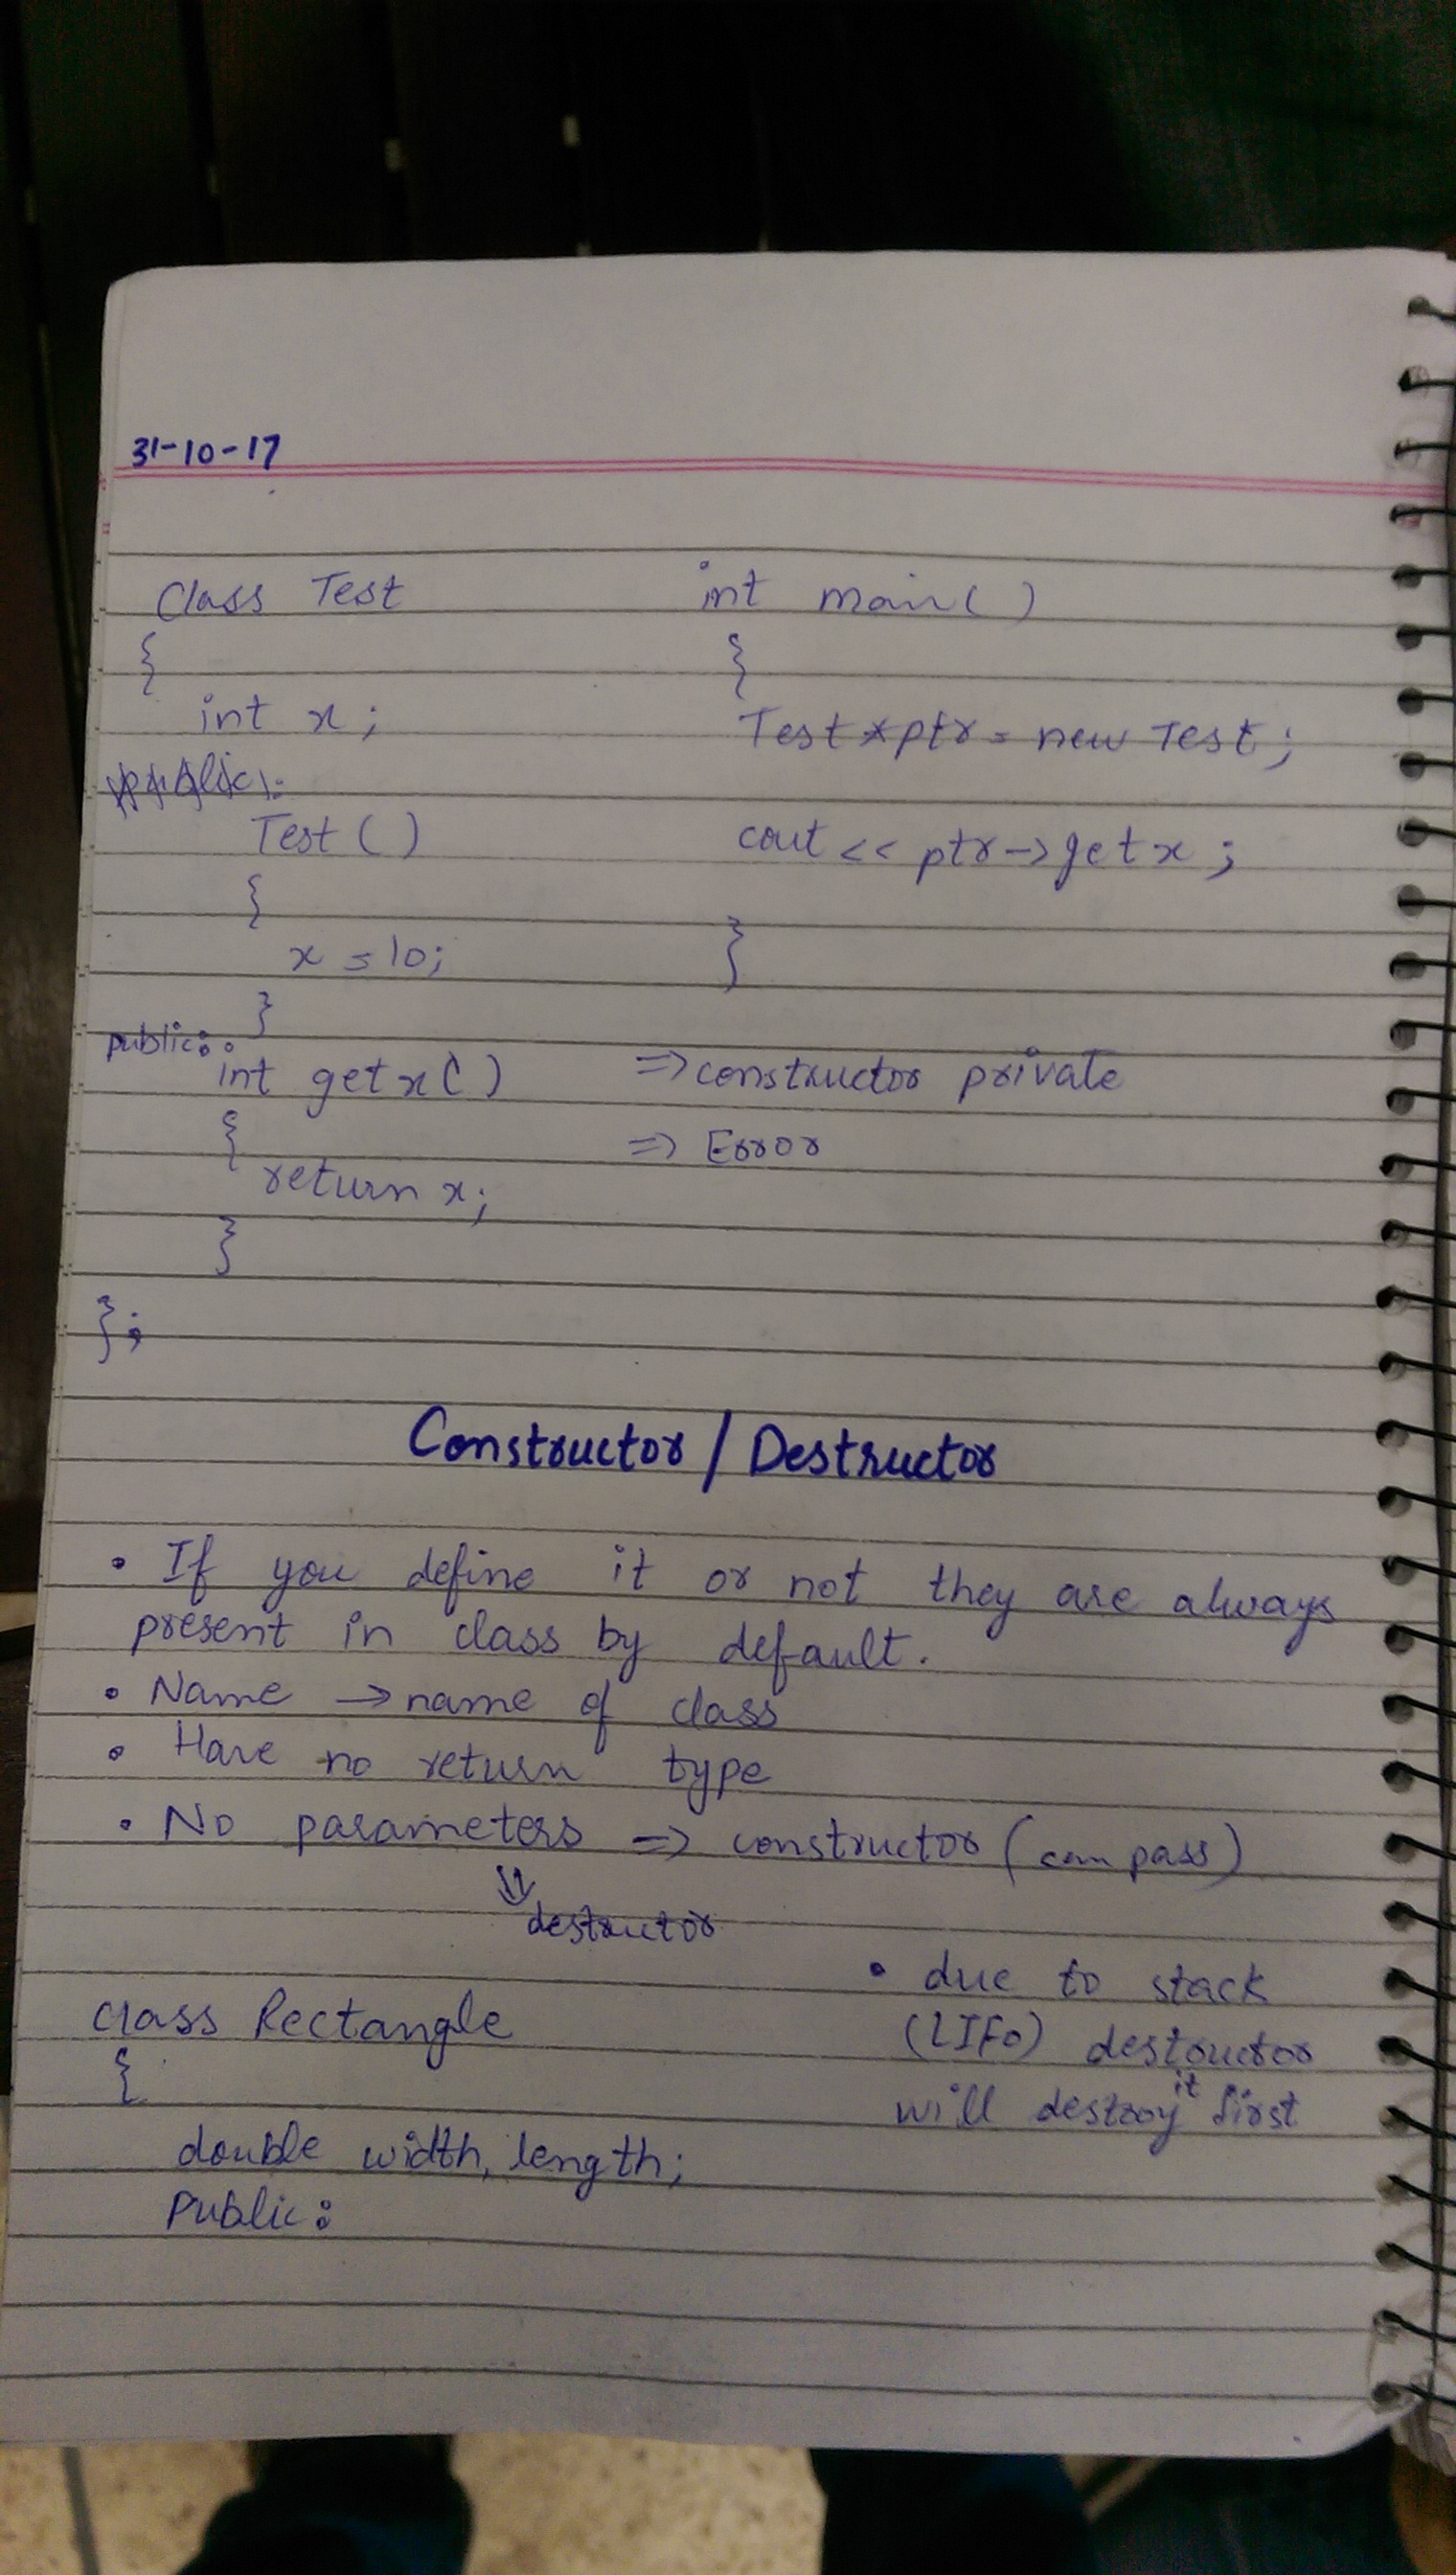 31-10-17
Class Test
{
int x;
public:
Test()
{
x = 10;
}
public:
int getx()
{
return x;
}
};
int main()
{
Test *ptr = new Test;
cout << ptr->getx;
}
=> constructor private
=> Error
Constructor / Destructor
• If you define it or not they are always
present in class by default.
• Name -> name of class
• Have no return type
• No parameters => constructor (can pass)
⇓
destructor
class Rectangle
{
double width, length;
Public:
• due to stack
(LIFO) destructor
will destroy it first